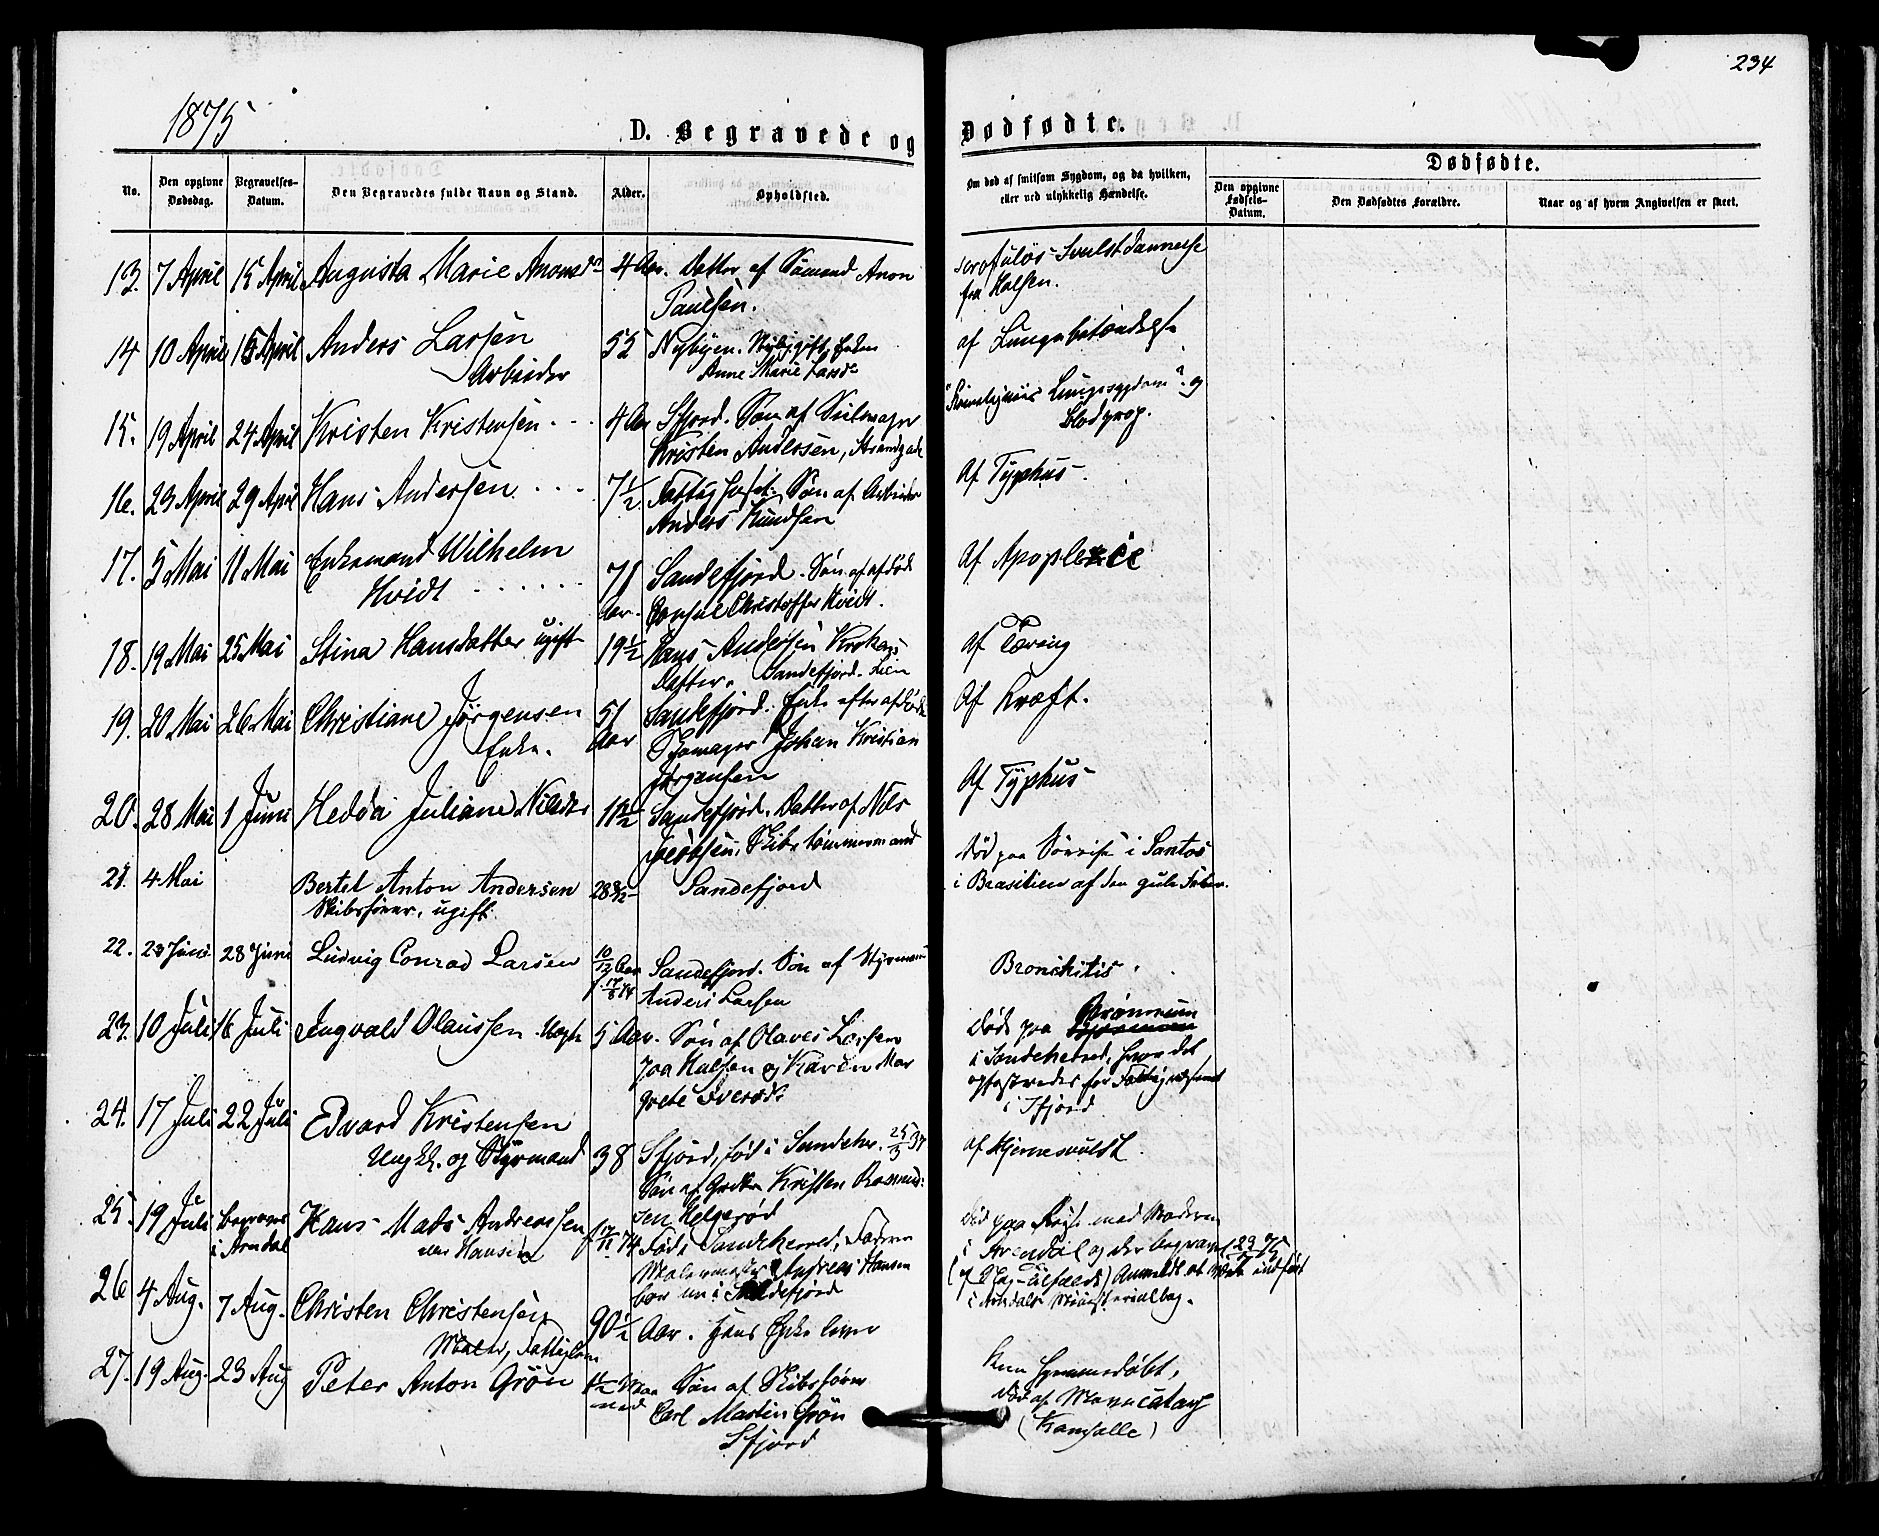 234
1875
D. Begravede og Dødfødte.
Dødfødte.
No. | Den opgivne Dødsdag. | Begravelses-Datum. | Den Begravedes fulde Navn og Stand. | Alder. | Opholdssted. | Om død af smitsom Sygdom, og da hvilken, eller ved ulykkelig Hændelse. | Den opgivne Fødsels-Datum. | Den Dødfødtes Forældre. | Naar og af hvem Angivelsen er skeet.
13. 7 April 15 April Augusta Marie 4 Aar. Datter af Sømand Anon
Paulsen.
Svulstdannelse
fra Halsen.
14 10 April 15 April Anders Larsen 55 Nybyen. Enken
Arbeider Anne Marie
af Lungebetændelse
15. 19 April 24 April Kristen Kristensen 4 Aar Sfjord. Søn af Seilmager
Kristen Andersen, Strandgade
Lungesygdom" og
Blodprop.
16. 23 April 29 April Hans Andersen 7 1/2 Fattighuset. Søn af Arbeider
Anders Knudsen
Af Typhus
17. 5 Mai 11 Mai Enkemand Wilhelm
Hvidt 71 Aar. Sandefjord. Søn af afdøde
Consul Christoffer Hvidt.
Af Apoplexie
18. 19 Mai 25 Mai Stina Hansdatter ugift 19 1/2 Hans Andersen
Datter. Sandefjord.
Af Tæring
19. 20 Mai 26 Mai Christiane Jørgensen
Enke. 51 Aar Sandefjord. Enke efter afdøde
Skomager Johan Kristian
Jørgensen
Af Kræft.
20. 28 Mai 1 Juni Hedda Juliane Nilsdtr Sandefjord. Datter af Nils
Jacobsen, Skibstømmermand
Af Typhus
21. 4 Mai Bertel Anton Andersen
Skibsfører, ugift. Sandefjord
død paa Sørreise i Santos
i Brasilien af den gule Feber.
22. 23 Juni 28 Juni Ludvig Conrad Larsen 10/12 Aar
f. 17/8 74
Sandefjord. Søn af Styrmand
Anders Larsen
Bronchitis.
23. 10 Juli 16 Juli Ingvald Olaussen 5 Aar. Søn af Olaves Larsen
Halsen og Karen Mar
grete
død paa
i Sandeherred, hvor det
opfostredes for Fattigvæsenet
i Sfjord
24. 17 Juli 22 Juli Edvard Kristensen
Ungk. og Styrmand 38 Sfjord, født i Sandehr. 25/3 37
Søn af Kristen Rasmus-
sen Helgerød
af Hjernesvulst.
25. 19 Juli begraves
i Arendal Hans Mads Andreassen
eller Hansen f. 17/11 74 Født i Sandeherred, Faderen
Malermester Andreas Hansen
bor nu i Sandefjord
død paa Reise med Moderen
i Arendal og der begravet
Anmeldt at være indført
i Arendals Ministerialbog.
26 4 Aug. 7 Aug. Christen Christensen
Maler, Fattiglem 90 1/2 Aar. Hans Enke lever
27. 19 Aug. 23 Aug Peter Anton Grøn Søn af Skibsfører
Carl Martin Grøn
Sfjord
Kun hjemmedøbt,
død af Mavecatarh
(Kamfalle)